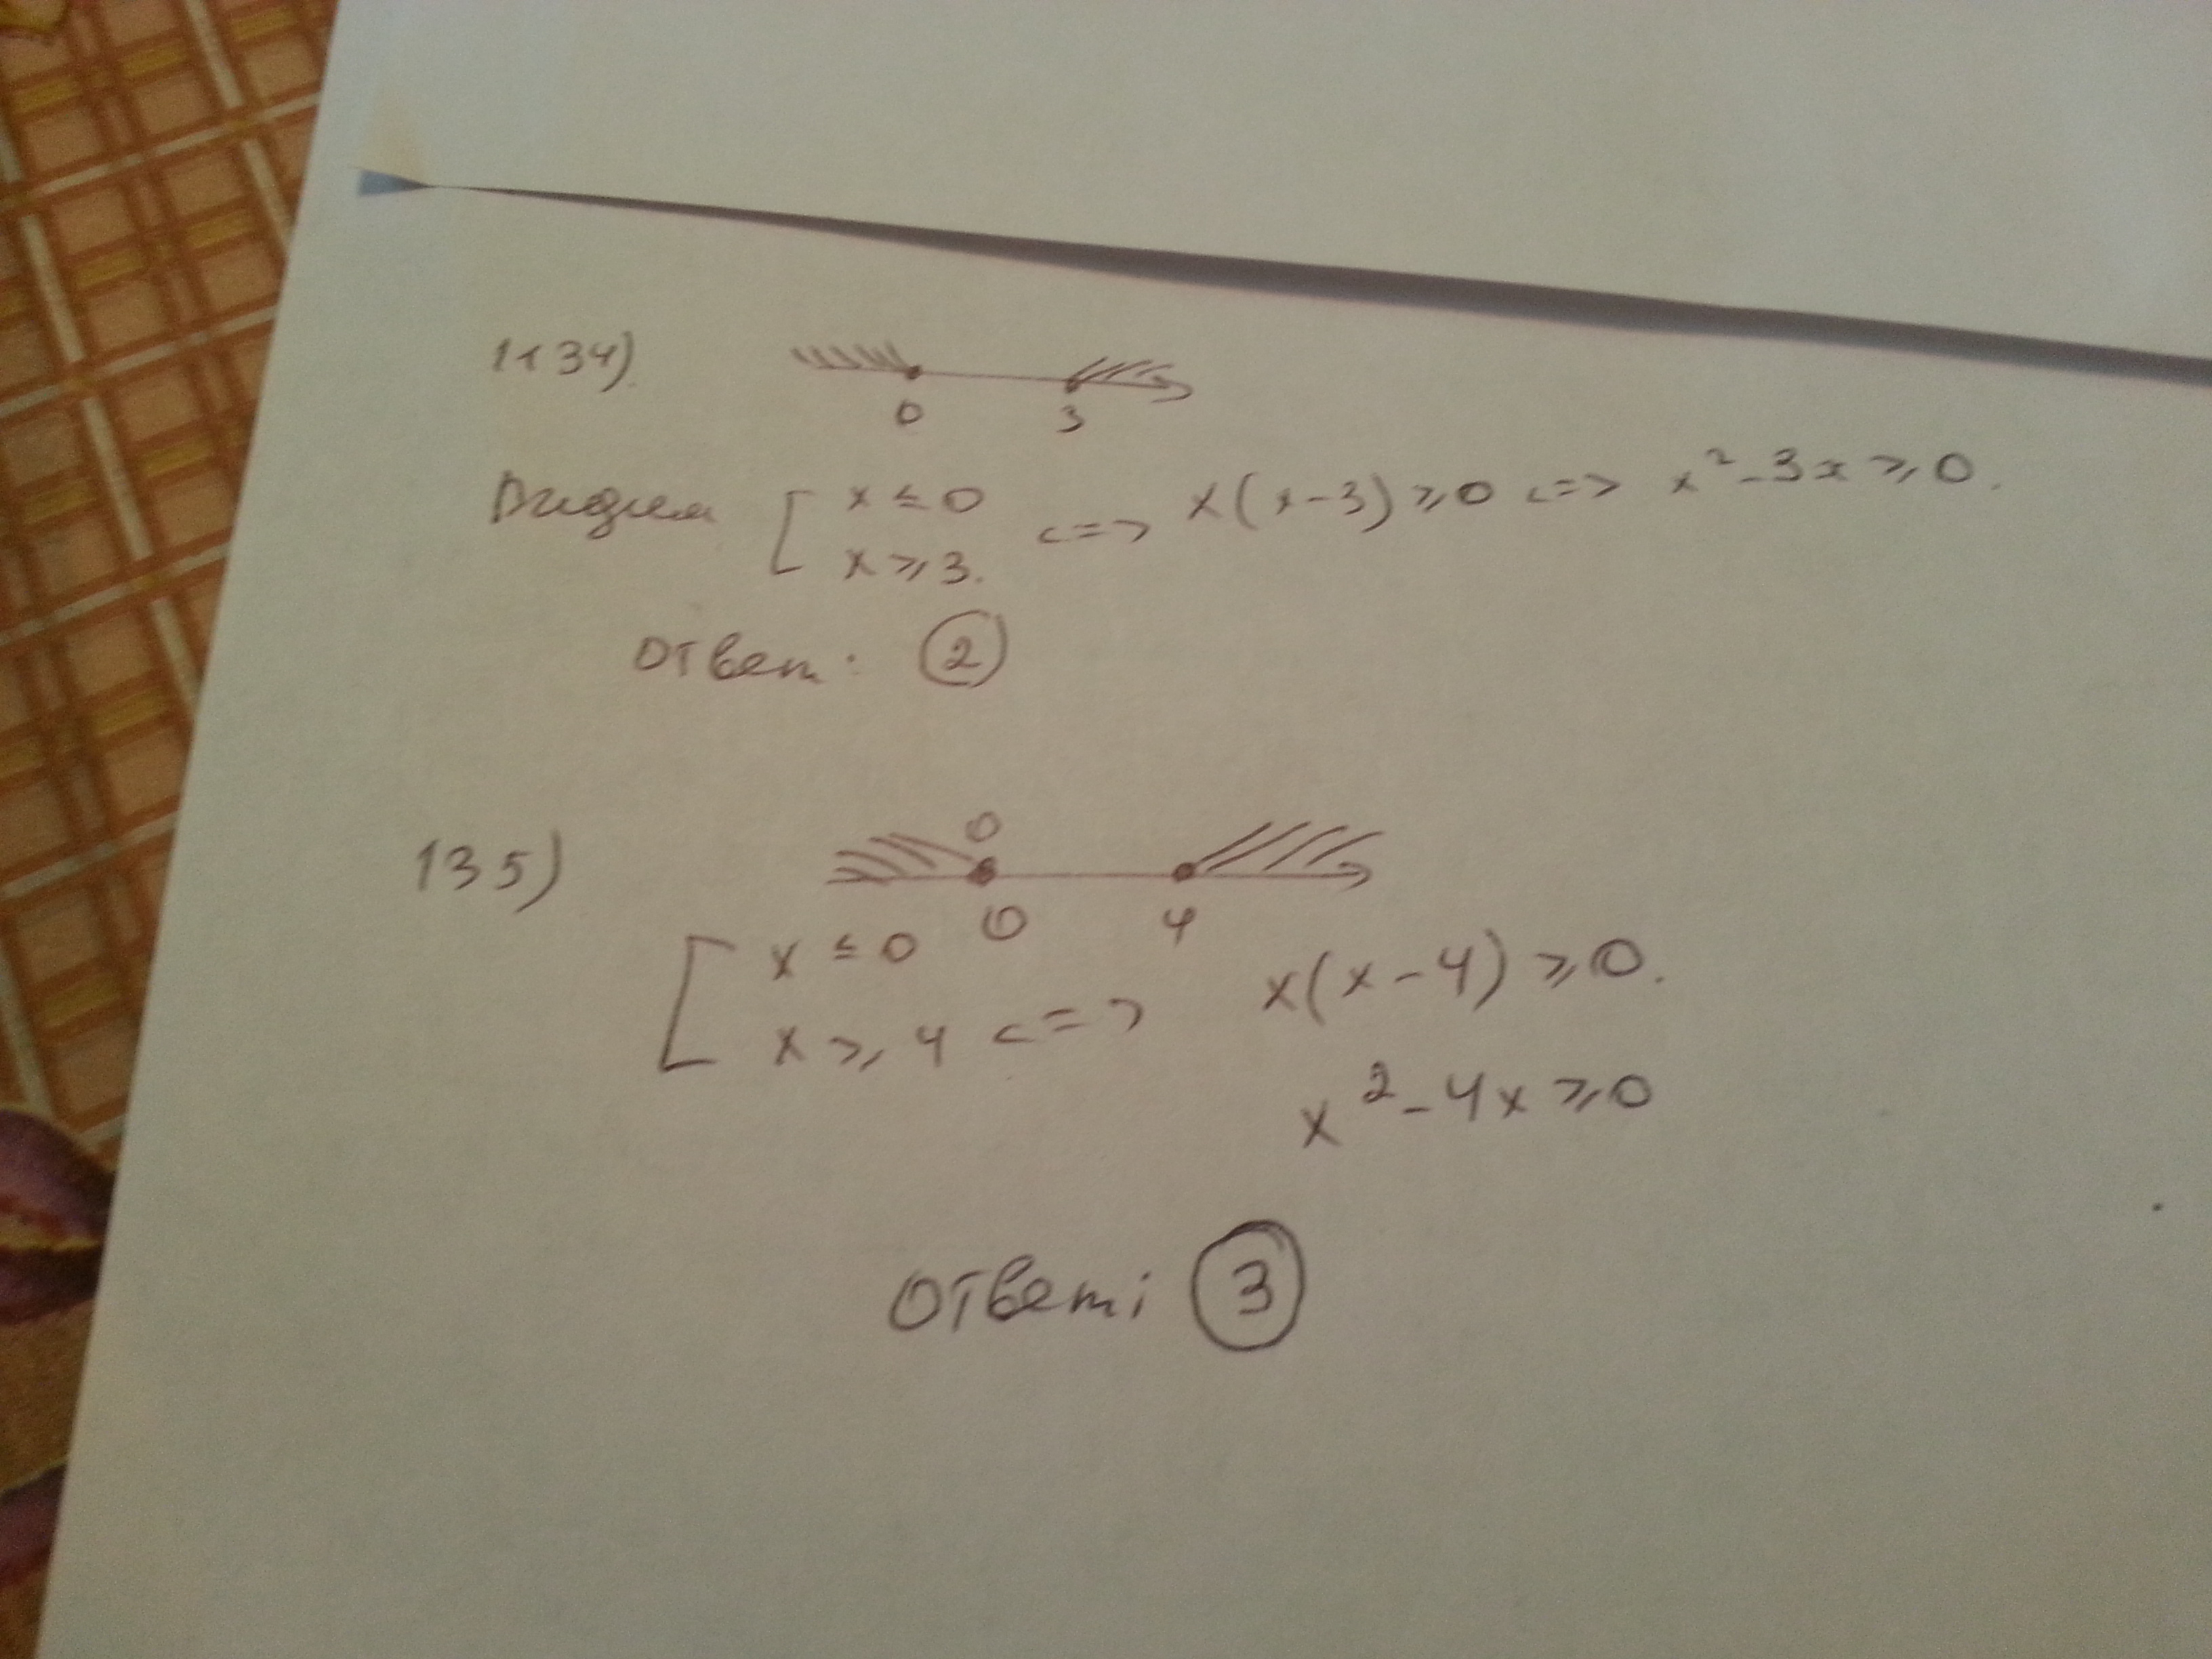 1134)
0 3
Видим [ x ≤ 0 <=> x(x-3) ≥ 0 <=> x² - 3x ≥ 0.
x ≥ 3.
Ответ: 2
135)
0
0 4
[ x ≤ 0
x ≥ 4 <=> x(x-4) ≥ 0.
x² - 4x ≥ 0
Ответ: 3